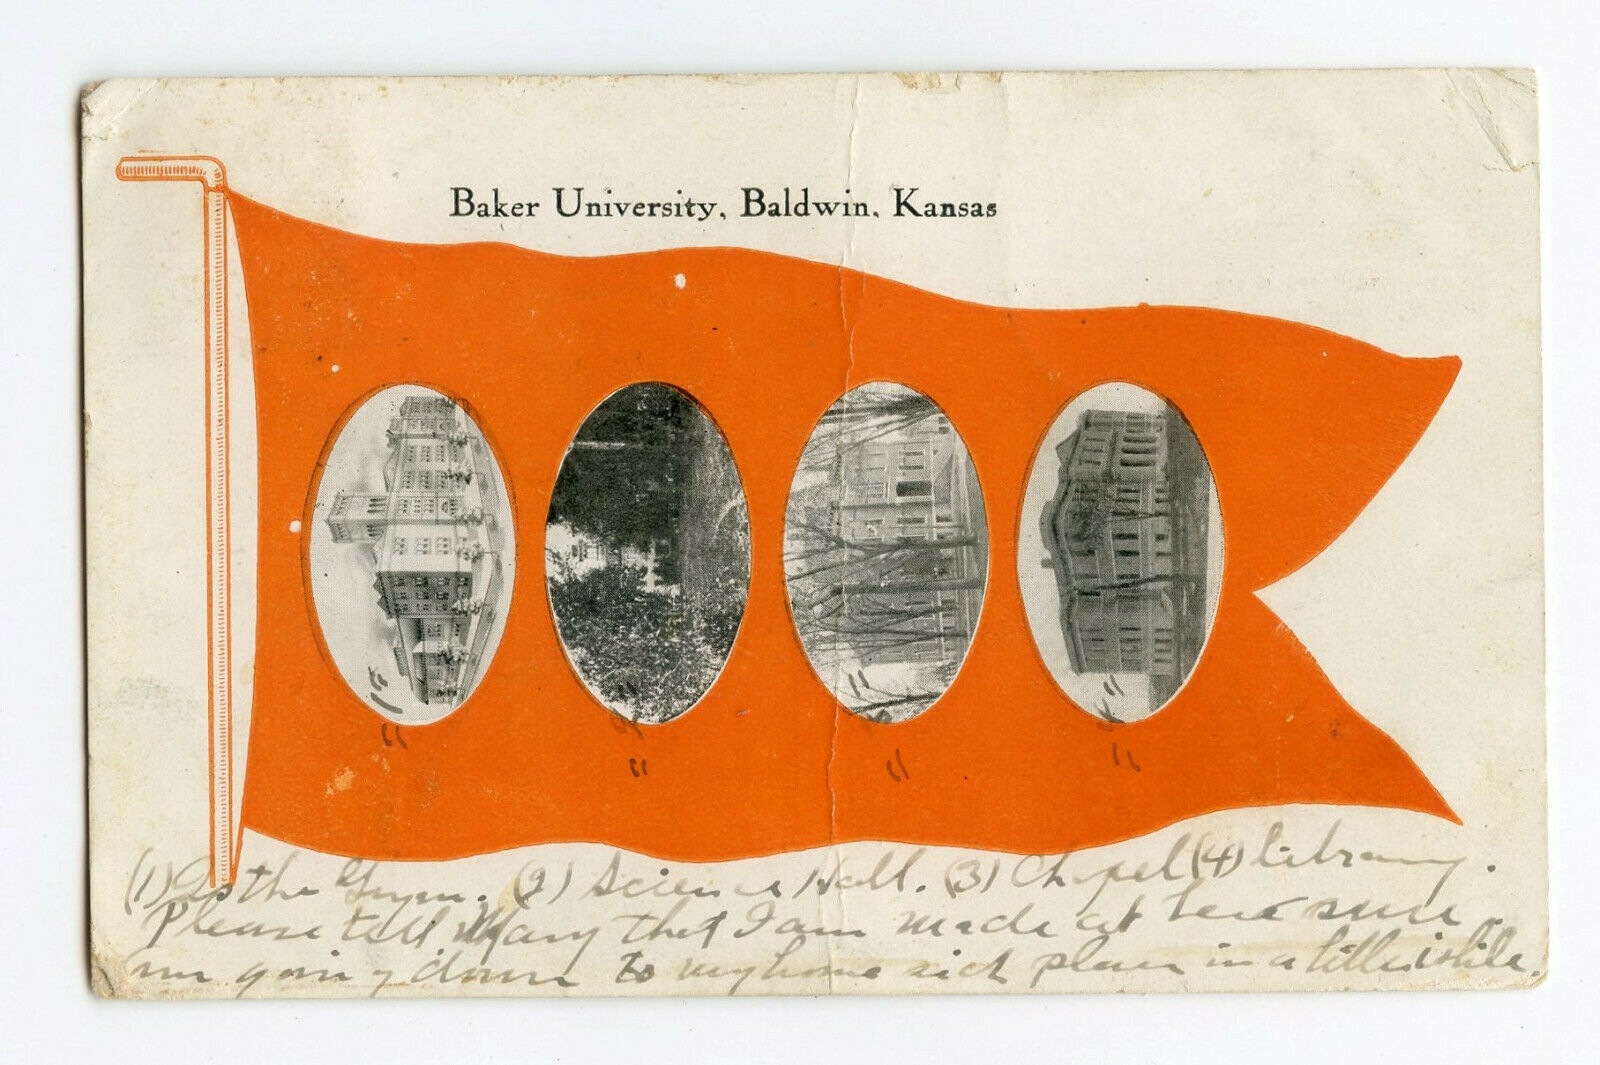 Baker University, Baldwin, Kansas
(1) Is the Gym. (2) Science Hall. (3) Chapel (4) Library.
Please tell Mary that I am made at her sure
am going down to my home sick place in a little while.